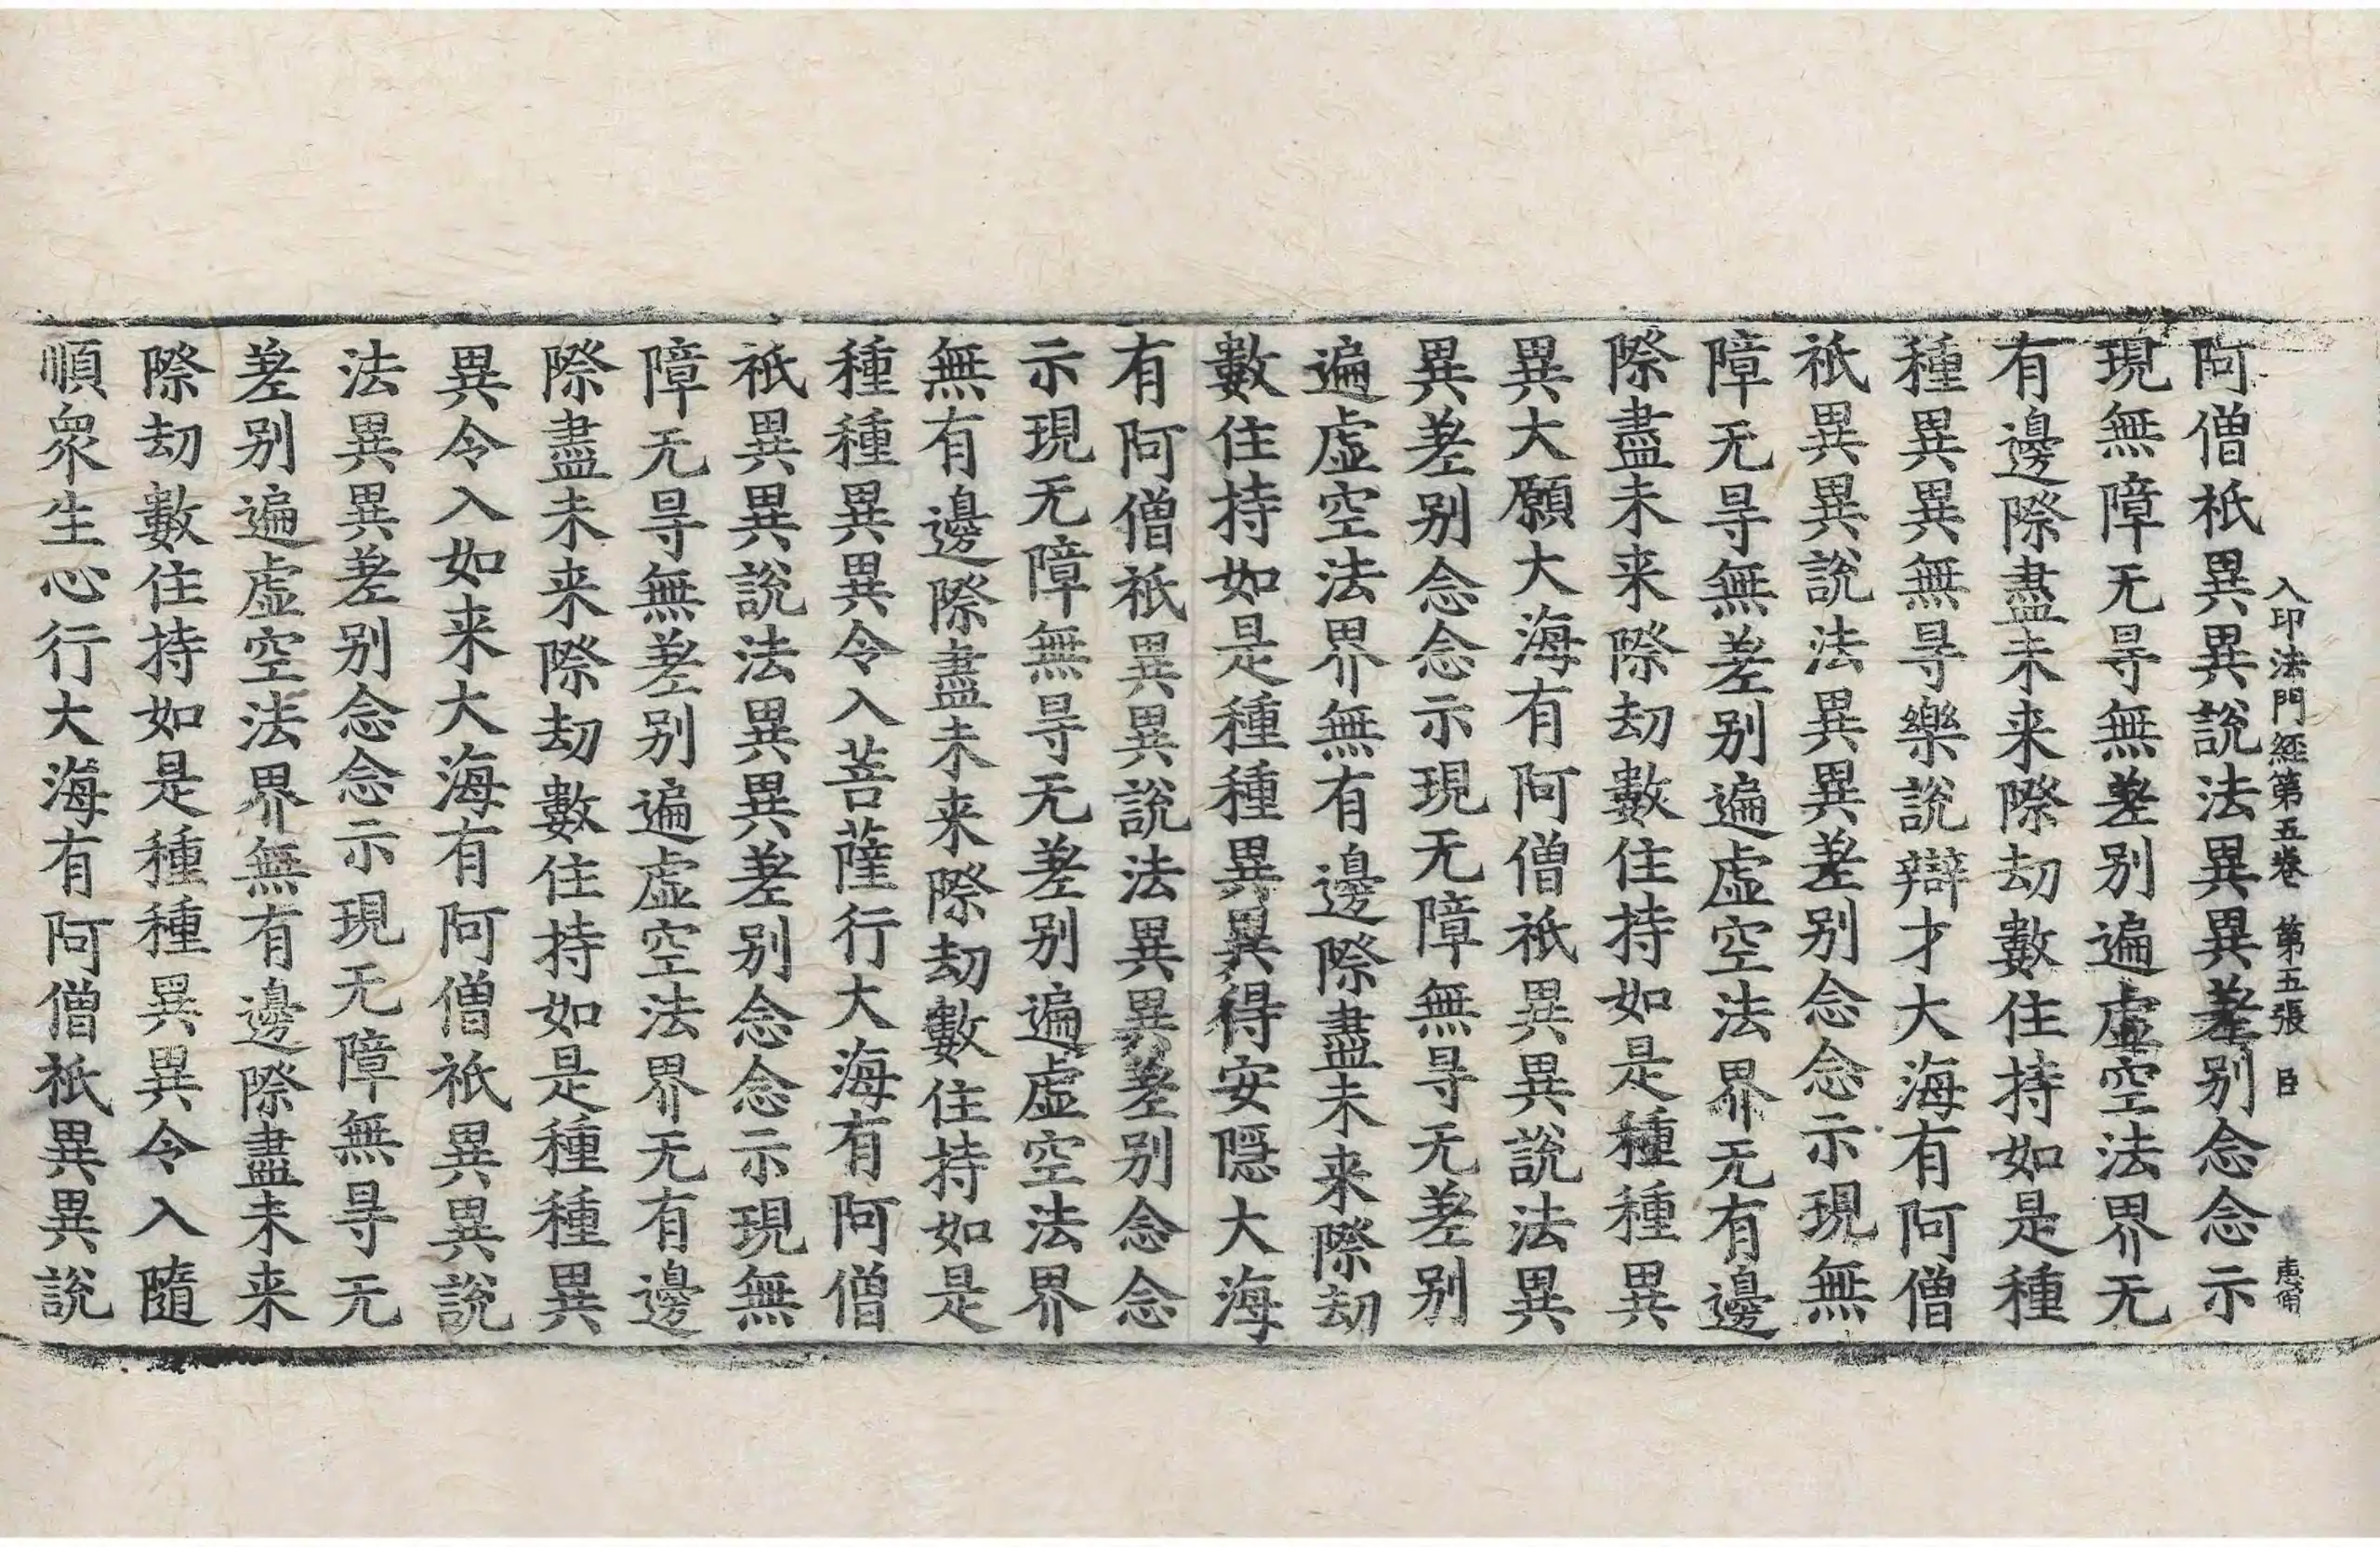 入印法門經第五卷 第五張 臣
阿僧祇異異說法異異差别念念示
現無障无㝵無差别遍虛空法界无
有邊際盡未来際劫數住持如是種
種異異無㝵樂說辯才大海有阿僧
祇異異說法異異差别念念示現無
障无㝵無差别遍虛空法界无有邊
際盡未来際劫數住持如是種種異
異大願大海有阿僧祇異異說法異
異差别念念示現无障無㝵无差别
遍虛空法界無有邊際盡未来際劫
數住持如是種種異異得安隱大海
有阿僧祇異異說法異異差别念念
示現无障無㝵无差别遍虛空法界
無有邊際盡未来際劫數住持如是
種種異異令入菩薩行大海有阿僧
祇異異說法異異差别念念示現無
障无㝵無差别遍虛空法界无有邊
際盡未来際劫數住持如是種種異
異令入如来大海有阿僧祇異異說
法異異差别念念示現无障無㝵无
差别遍虛空法界無有邊際盡未来
際劫數住持如是種種異異令入隨
順衆生心行大海有阿僧祇異異說